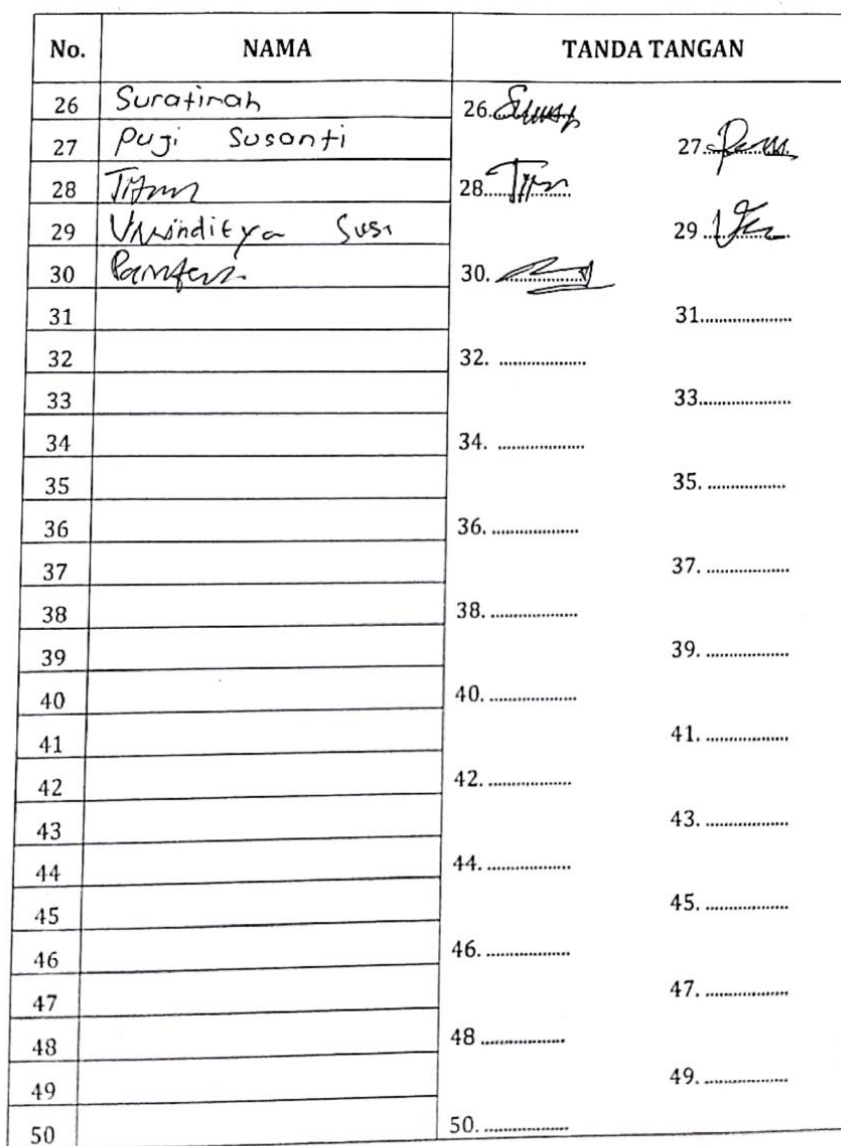 No. NAMA TANDA TANGAN
26 Suratinah 26.
27 Puji Susanti 27
28 28.
29 Susi 29
30 30.
31 31.
32 32.
33 33.
34 34.
35 35.
36 36.
37 37.
38 38.
39 39.
40 40.
41 41.
42 42.
43 43.
44 44.
45 45.
46 46.
47 47.
48 48
49 49.
50 50.